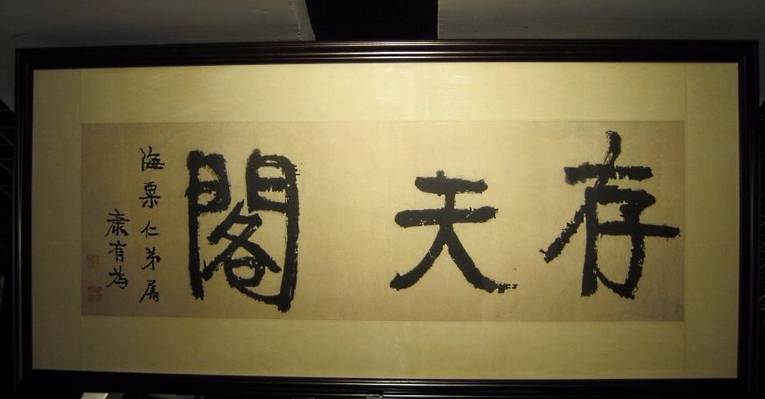 存天閣
海粟仁弟属
康有為